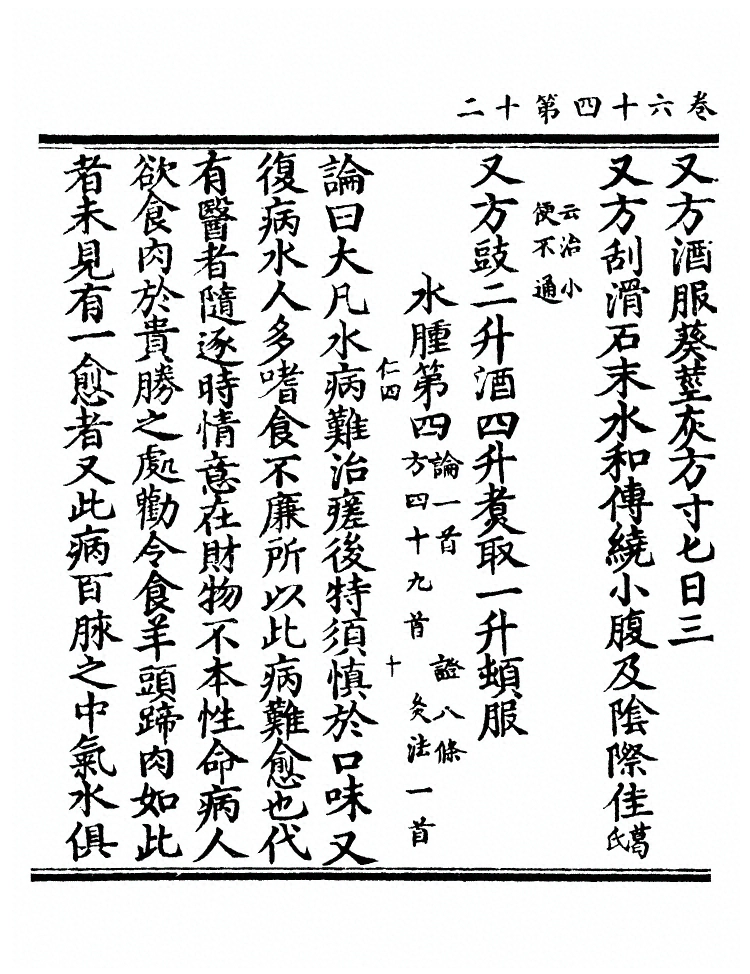 卷六十四第十二
又方酒服葵莖灰方寸匕日三
又方刮滑石末水和傅繞小腹及陰際佳葛氏
云治小
便不通
又方豉二升酒四升煑取一升頓服
水腫第四論一首 證八條
方四十九首 灸法一首
仁四
十
論曰大凡水病難治瘥後特須慎於口味又
復病水人多嗜食不廉所以此病難愈也代
有醫者隨逐時情意在財物不本性命病人
欲食肉於貴勝之處勸令食羊頭蹄肉如此
者未見有一愈者又此病百脉之中氣水俱